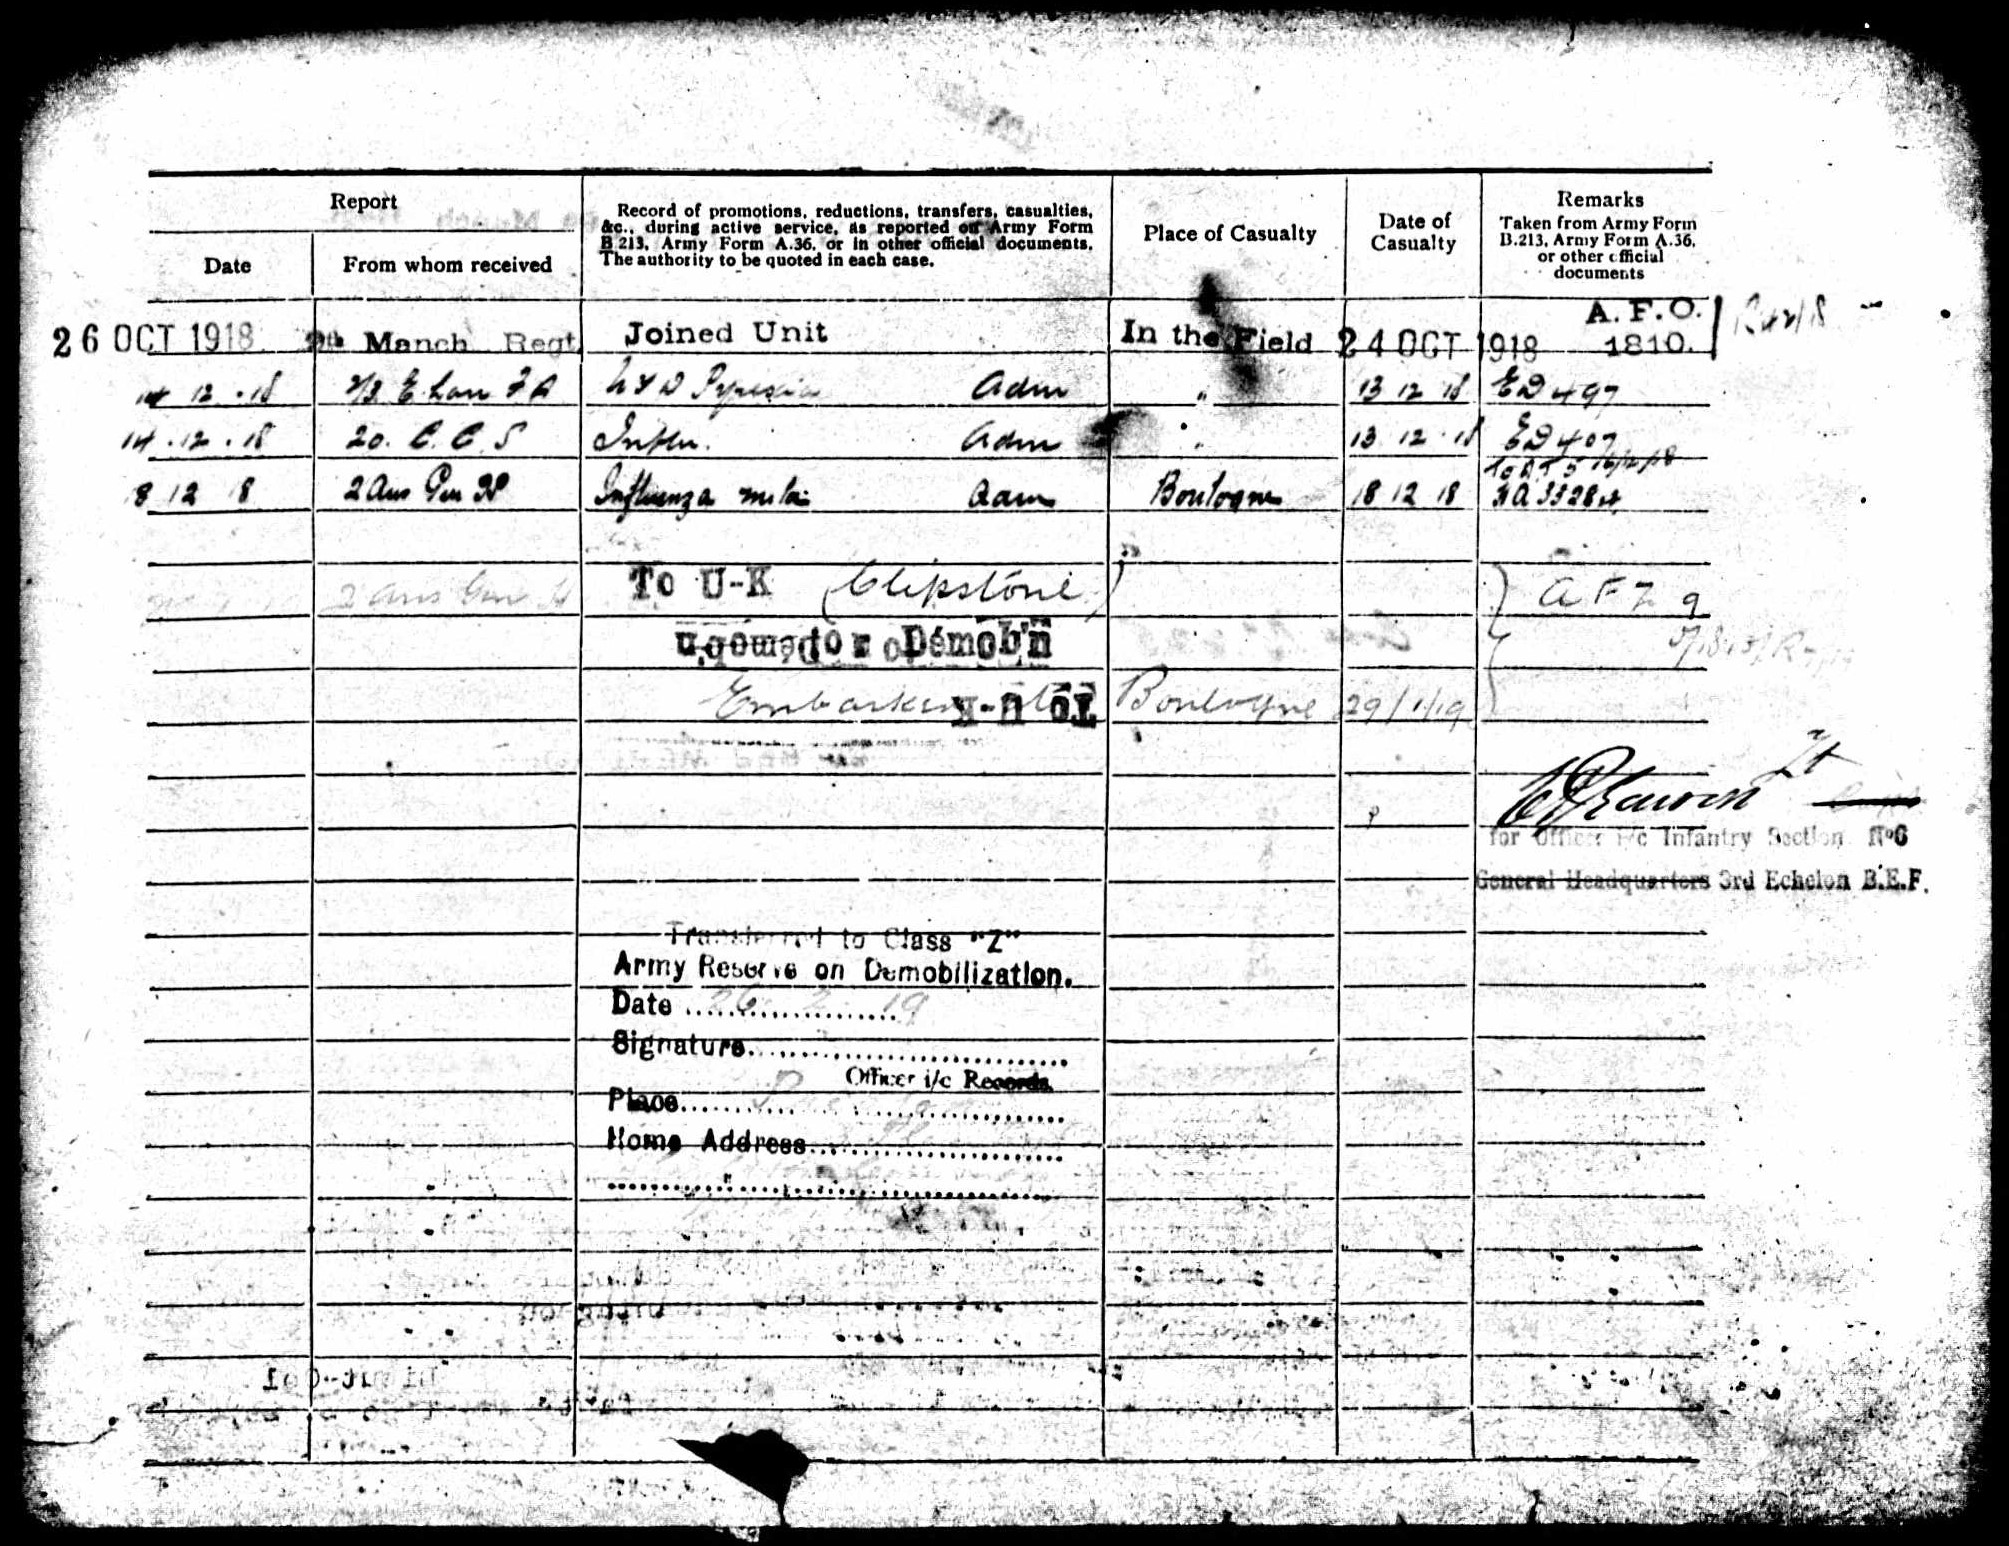 Report
Date
From whom received
Record of promotions, reductions, transfers, casualties,
&c., during active service, as reported on Army Form
B 213, Army Form A.36, or in other official documents.
The authority to be quoted in each case.
Place of Casualty
Date of
Casualty
Remarks
Taken from Army Form
B.213, Army Form A.36,
or other official
documents
26 OCT 1918 Manch Regt. Joined Unit In the Field 24 OCT 1918 A.F.O.
1810.
14 12 .18 2/3 E. Lan F A Pyrexia Adm " 13 12 18 ED 497
14 . 12 . 18 20. C. C. S Influ. Adm " 13 12 . 18 ED 407
18 12 18 2 Aus Gen H Influenza Adm Boulogne 18 12 18
2 Aus Gen H To U-K (Clipstone) A F Z
for Demob'n
To U-K
Boulogne 29/1/19
Lt
for Officer i/c Infantry Section Nº6
General Headquarters 3rd Echelon B.E.F.
Transferred to Class "Z"
Army Reserve on Demobilization.
Date 26 2 19
Signature
Officer i/c Records.
Place
Home Address